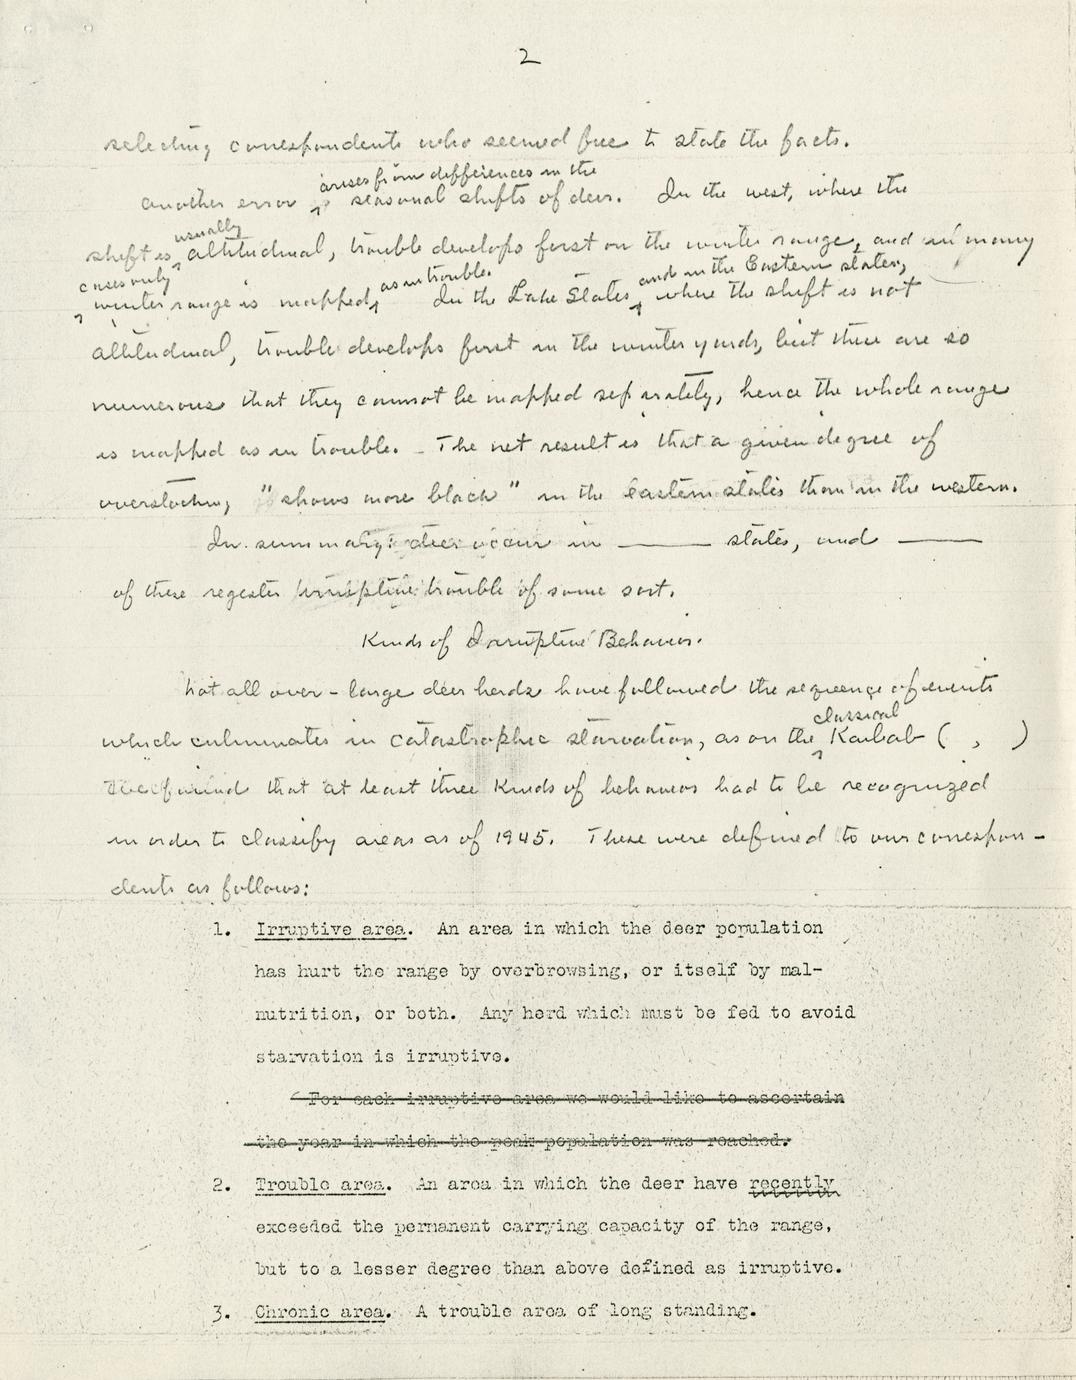 2
selecting correspondents who seemed free to state the facts.
arises from differences in the
another error seasonal shifts of deer. In the west, where the
usually
shift is altitudinal, trouble develops first on the winter range, and in many
cases only as in trouble. and in the Eastern states,
winter range is mapped In the Lake States where the shift is not
altitudinal, trouble develops first in the winter yards, but there are so
numerous that they cannot be mapped separately, hence the whole range
is mapped as in trouble. The net result is that a given degree of
overstocking "shows more black" in the eastern states than in the western.
In summary: deer occur in ——— states, and ———
of these register irruptive trouble of some sort.
Kinds of Irruptive Behavior.
Not all over-large deer herds have followed the sequence of events
classical
which culminates in catastrophic starvation, as on the Kaibab ( , )
We found that at least three kinds of behavior had to be recognized
in order to classify areas as of 1945. These were defined to our correspon-
dents as follows:
1. Irruptive area. An area in which the deer population
has hurt the range by overbrowsing, or itself by mal-
nutrition, or both. Any herd which must be fed to avoid
starvation is irruptive.
For each irruptive area we would like to ascertain
the year in which the peak population was reached.
2. Trouble area. An area in which the deer have recently
exceeded the permanent carrying capacity of the range,
but to a lesser degree than above defined as irruptive.
3. Chronic area. A trouble area of long standing.